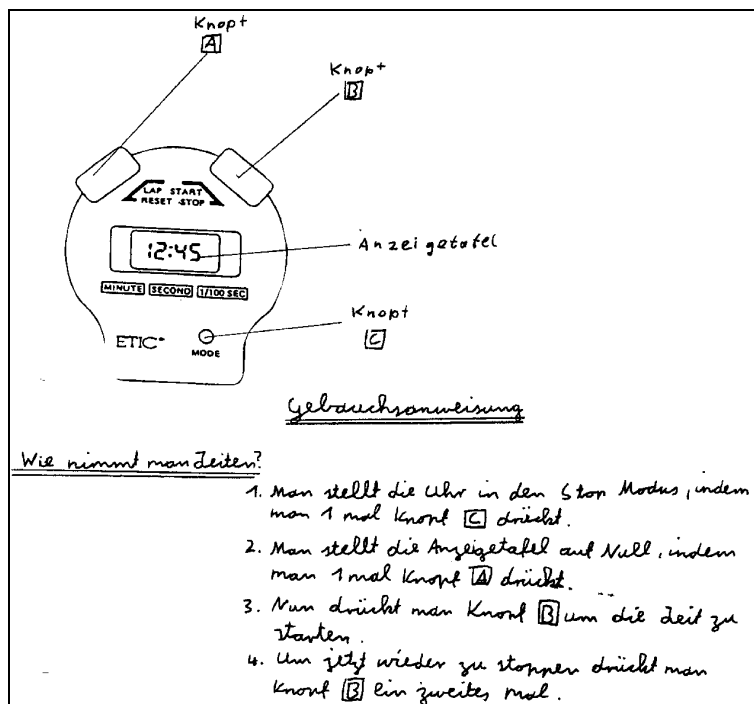 Knopf
A
Knopf
B
LAP START
RESET STOP
12:45
Anzeigetafel
MINUTE SECOND 1/100 SEC
Knopf
C
ETIC
MODE
Gebrauchsanweisung
Wie nimmt man Zeiten?
1. Man stellt die Uhr in den Stop Modus, indem
man 1 mal Knopf C drückt.
2. Man stellt die Anzeigetafel auf Null, indem
man 1 mal Knopf A drückt.
3. Nun drückt man Knopf B um die Zeit zu
starten.
4. Um jetzt wieder zu stoppen drückt man
Knopf B ein zweites mal.